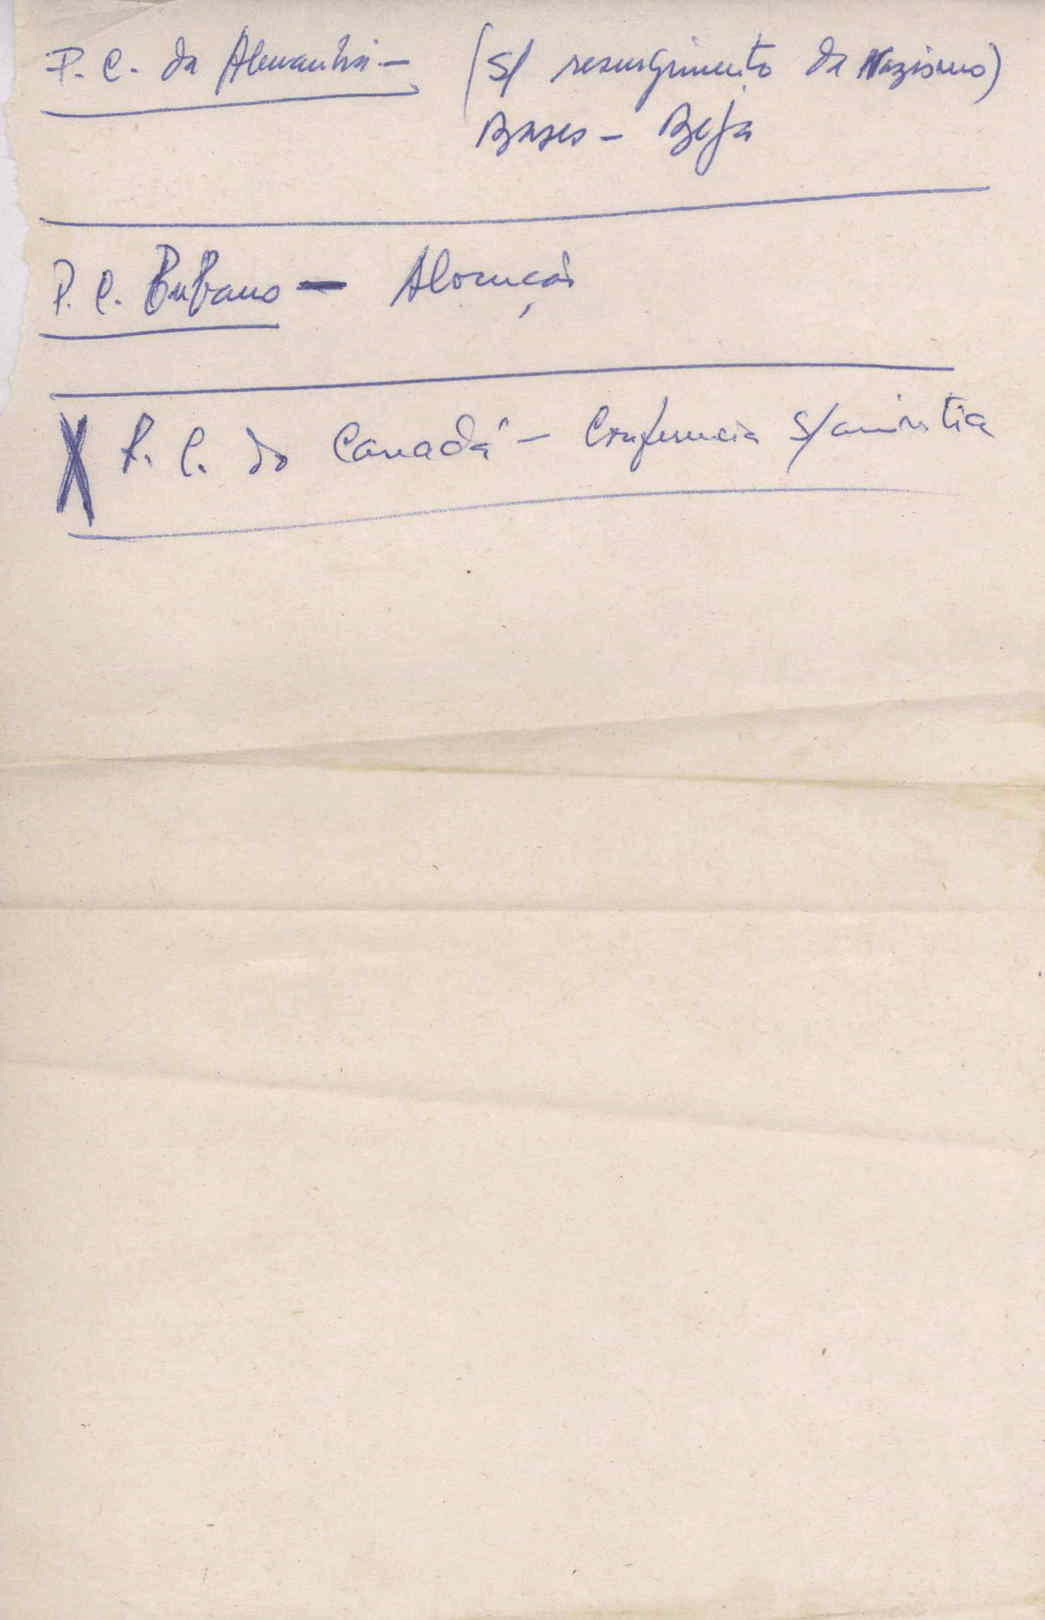 P. C. da Alemanha — (S/ resurgimento do Nazismo)
Bases — Beja
P. C. Cubano — Alocução
X P. C. do Canadá — Conferencia S/ amnistia